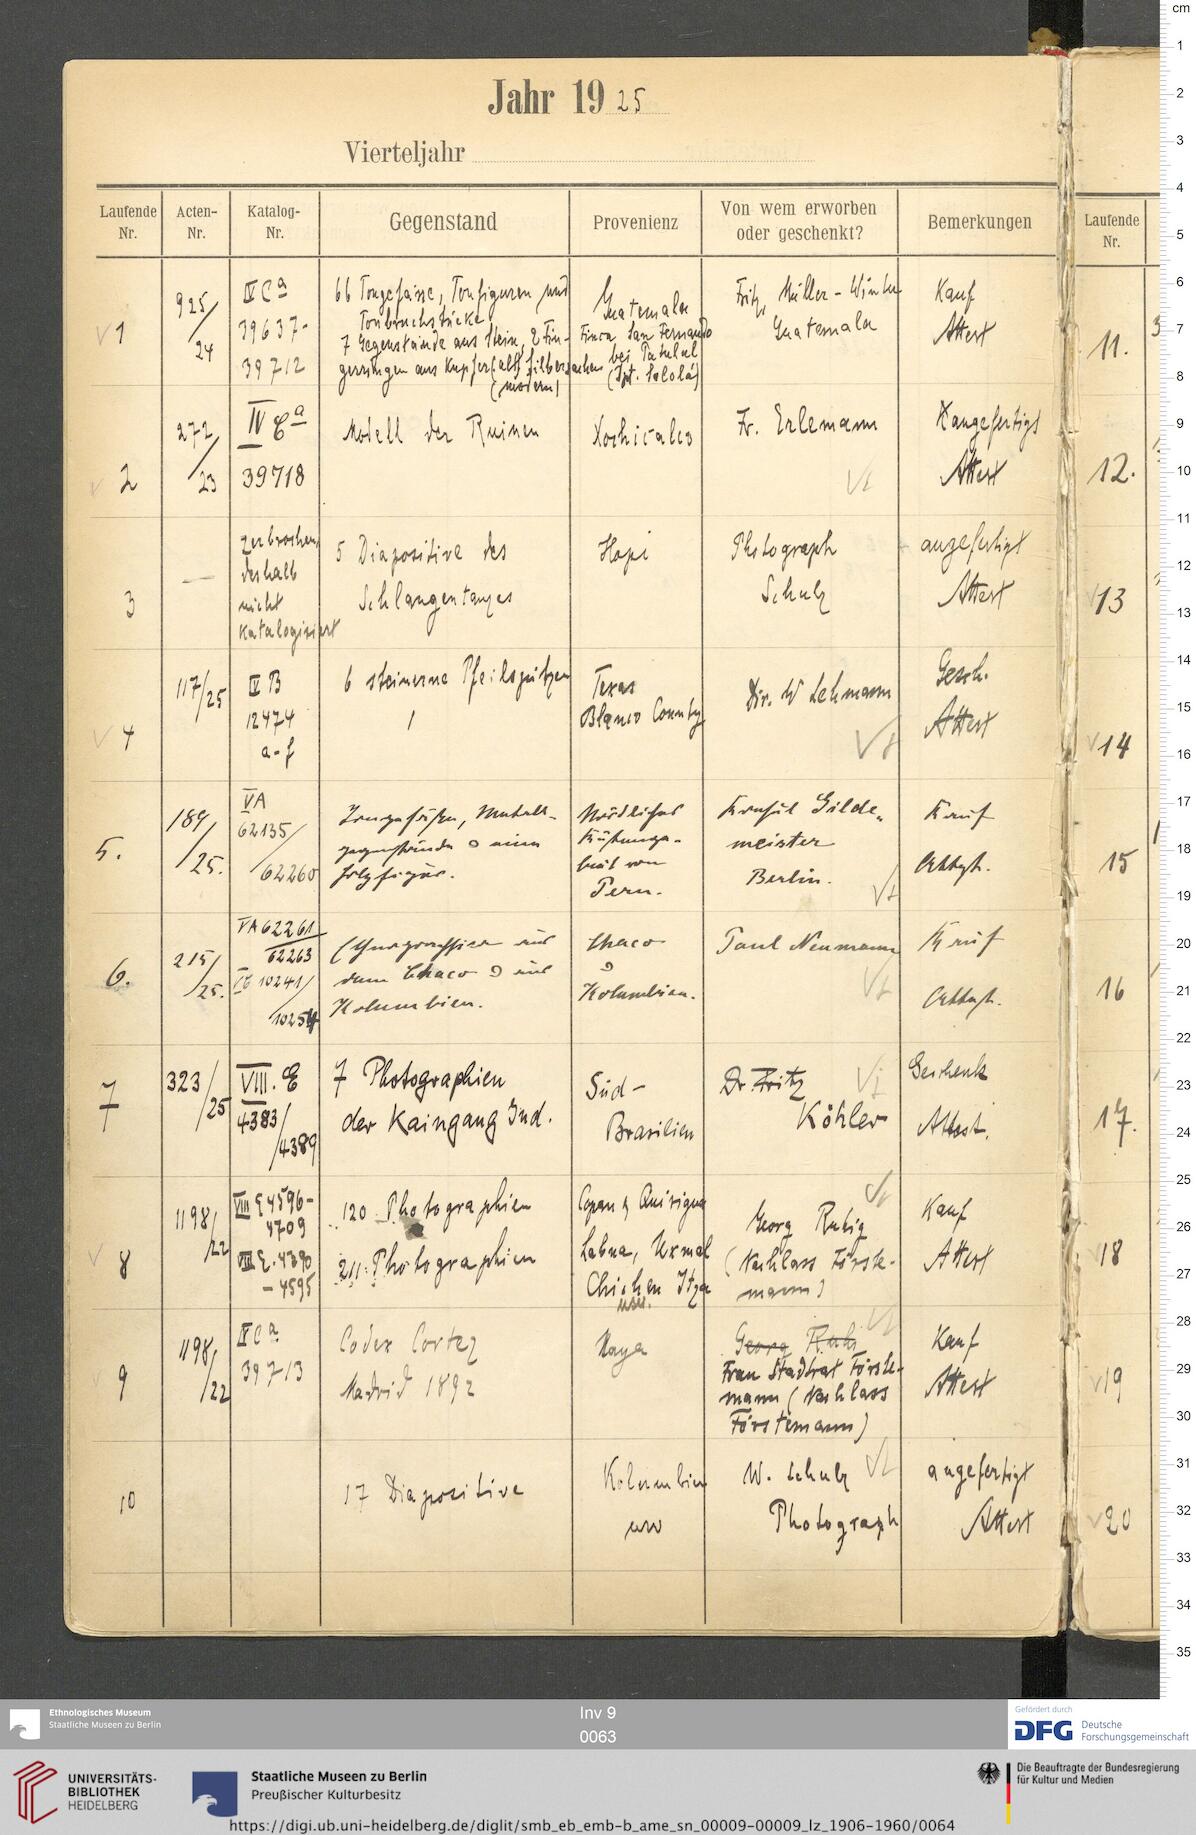 Jahr 1925
Vierteljahr
Laufende Nr.
Acten-Nr.
Katalog-Nr.
Gegenstand
Provenienz
Von wem erworben oder geschenkt?
Bemerkungen
Laufende Nr.
1
925/24
IV Ca
39637-
39712
66 Tongefässe, Tonfiguren und
Tonbruchstücke,
7 Gegenstände aus Stein, 2 Fin-
gerringen aus Kupfer (alt), Silbersachen
(modern)
Guatemala
Finca San Fernando
bei Patulul
(Dpt. Sololá)
Fritz Müller-Winter
Guatemala
Kauf
Attert
11.
2
272/23
IV Ca
39718
Modell der Ruinen
Xochicalco
Fr. Erlemann
angefertigt
Attert
12.
3
—
zerbrochen,
deshalb
nicht
katalogisiert
5 Diapositive des
Schlangentanzes
Hopi
Photograph
Schulz
angefertigt
Attert
13
4
117/25
IV B
12474
a-f
6 steinerne Pfeilspitzen
Texas
Blanco County
Dir. W Lehmann
Gesch.
Attert
14
5.
189/25.
VA
62135/
62260
Tongefäßen, Metall-
gegenstände u eine
Holzfigur.
Nördliches
Küstenge-
biet von
Peru.
Konsul Gilde-
meister
Berlin.
Kauf
Attest.
15
6.
215/25.
VA 62261
62263
10241/
10254
Ethnographica aus
dem Chaco u aus
Kolumbien.
Chaco
u
Kolumbien.
Paul Neumann
Kauf
Attest.
16
7
323/25
VIII. E
4383/
4389
7 Photographien
der Kaingang Ind.
Süd-
Brasilien
Dr. Fritz
Köhler
Geschenk
Attest.
17.
8
1198/22
VIII E 4596-
4709
VIII E. 4390
- 4595
120 Photographien
211 Photographien
Copan & Quirigua
Labna, Uxmal
Chichen Itza
usw.
Georg Rubig
(Nachlass Förste-
mann)
Kauf
Attert
18
9
1198/22
IV Ca
39713
Codex Cortez
Madrid 1892
Maya
Georg
Frau Stadtrat Förste-
mann (Nachlass
Förstemann)
Kauf
Attert
19
10
17 Diapositive
Kolumbien
usw
W. Schulz
Photograph
angefertigt
Attert
20
cm
1
2
3
4
5
6
7
8
9
10
11
12
13
14
15
16
17
18
19
20
21
22
23
24
25
26
27
28
29
30
31
32
33
34
35
Ethnologisches Museum
Staatliche Museen zu Berlin
Inv 9
0063
Gefördert durch
DFG Deutsche
Forschungsgemeinschaft
UNIVERSITÄTS-
BIBLIOTHEK
HEIDELBERG
Staatliche Museen zu Berlin
Preußischer Kulturbesitz
Die Beauftragte der Bundesregierung
für Kultur und Medien
https://digi.ub.uni-heidelberg.de/diglit/smb_eb_emb-b_ame_sn_00009-00009_lz_1906-1960/0064